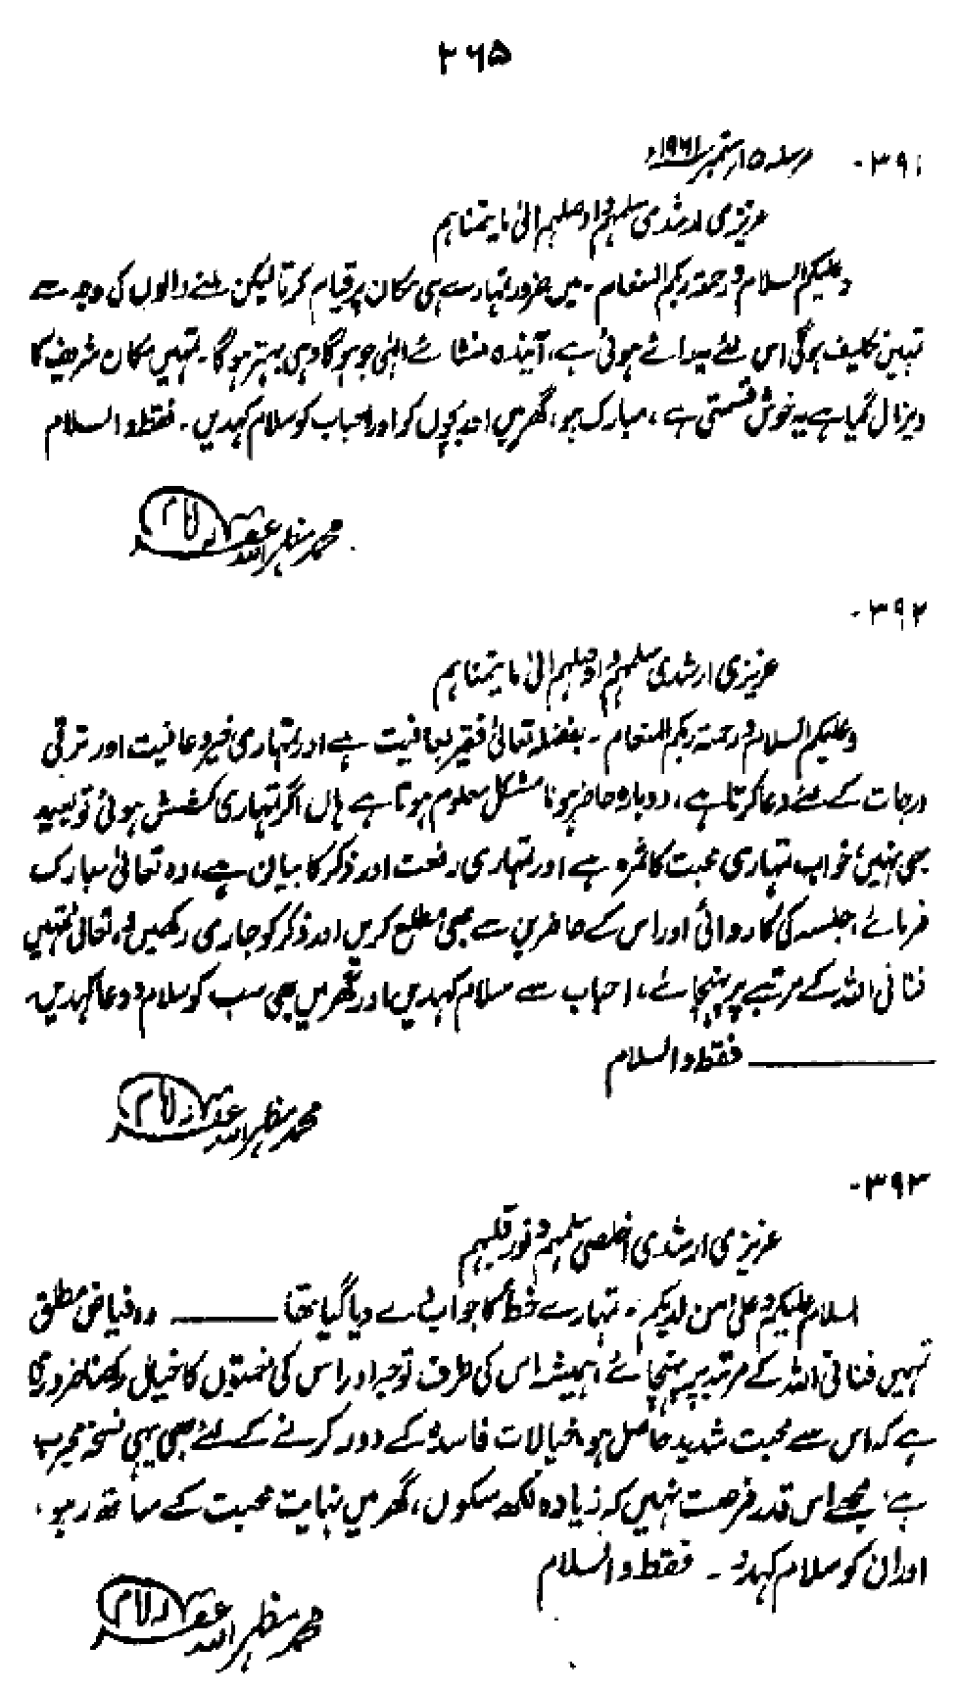 ۲۶۵
۳۹۱- مرسلہ ۱۵ر ستمبر ۱۹۶۱ء
عزیزی ارشدی سلمہم و اوصلہم الیٰ ما یتمناہم
وعلیکم السلام و رحمۃ ربکم المنعام۔ میں ضرور تمہارے ہی مکان پر قیام کرتا لیکن ملنے والوں کی وجہ سے
تمہیں تکلیف ہوگی اس لئے پیدائے ہوئی ہے، آیندہ منشائے الٰہی جو ہوگا وہی بہتر ہوگا۔ تمہیں مکان شریف کا
ویزا مل گیا ہے یہ خوش قسمتی ہے، مبارک ہو، گھر میں اور بچوں کو اور احباب کو سلام کہدیں۔ فقط والسلام
محمد مظہر اللہ غفرلہ امام
۳۹۲-
عزیزی ارشدی سلمہم و اوصلہم الیٰ ما یتمناہم
وعلیکم السلام و رحمۃ ربکم المنعام۔ بفضلہ تعالیٰ فقیر بعافیت ہے اور تمہاری خیر و عافیت اور ترقی
درجات کے لئے دعا کرتا ہے، دوبارہ حاضر ہونا مشکل معلوم ہوتا ہے ہاں اگر تمہاری کشش ہوئی تو بعید
بھی نہیں، خواب تمہاری محبت کا ثمرہ ہے اور تمہاری رفعت اور ذکر کا بیان ہے، وہ تعالیٰ مبارک
فرمائے، جلسہ کی کاروائی اور اس کے حاضرین سے بھی مطلع کریں اور ذکر کو جاری رکھیں وہ تعالیٰ تمہیں
فنا فی اللہ کے مرتبے پر پہنچائے، احباب سے سلام کہدیں اور گھر میں بھی سب کو سلام و دعا کہدیں۔
فقط والسلام
محمد مظہر اللہ غفرلہ امام
۳۹۳-
عزیزی ارشدی اخلصی سلمہم و نور قلبہم
السلام علیکم و علیٰ من لدیکم۔ تمہارے خط کا جواب دے دیا گیا تھا ——— وہ فیاض مطلق
تمہیں فنا فی اللہ کے مرتبہ پر پہنچائے، ہمیشہ اس کی طرف توجہ اور اس کی نعمتوں کا خیال رکھنا ضروری
ہے کہ اس سے محبت شدید حاصل ہو، خیالات فاسدہ کے دور کرنے کے لئے بھی یہی نسخہ مجرب
ہے، مجھے اس قدر فرصت نہیں کہ زیادہ لکھ سکوں، گھر میں نہایت محبت کے ساتھ رہو،
اور ان کو سلام کہدو۔ فقط والسلام
محمد مظہر اللہ غفرلہ امام